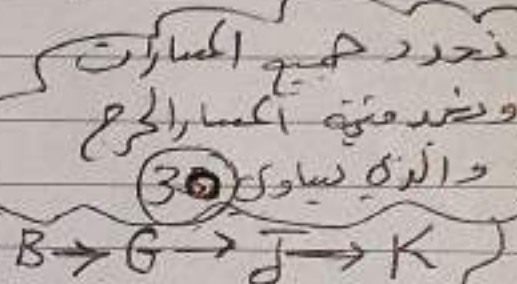 نحدد جميع المسارات
ونحدد منها المسار الحرج
والذي يساوي 30
B → G → J → K